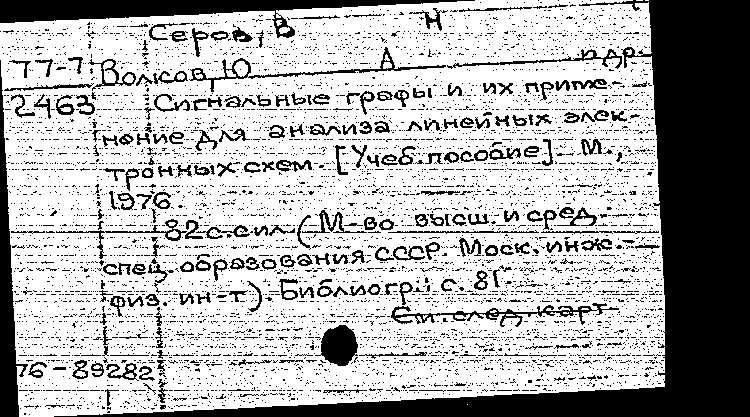 Серов, В Н
77-7 Волков, Ю А и др.
2463 Сигнальные графы и их приме-
нение для анализа линейных элек-
тронных схем. [Учеб. пособие]. М.,
1976.
82 с. с ил. (М-во высш. и сред.
спец. образования СССР. Моск. инж.-
физ. ин-т). Библиогр.: с. 81.
См. след. карт
76-89282